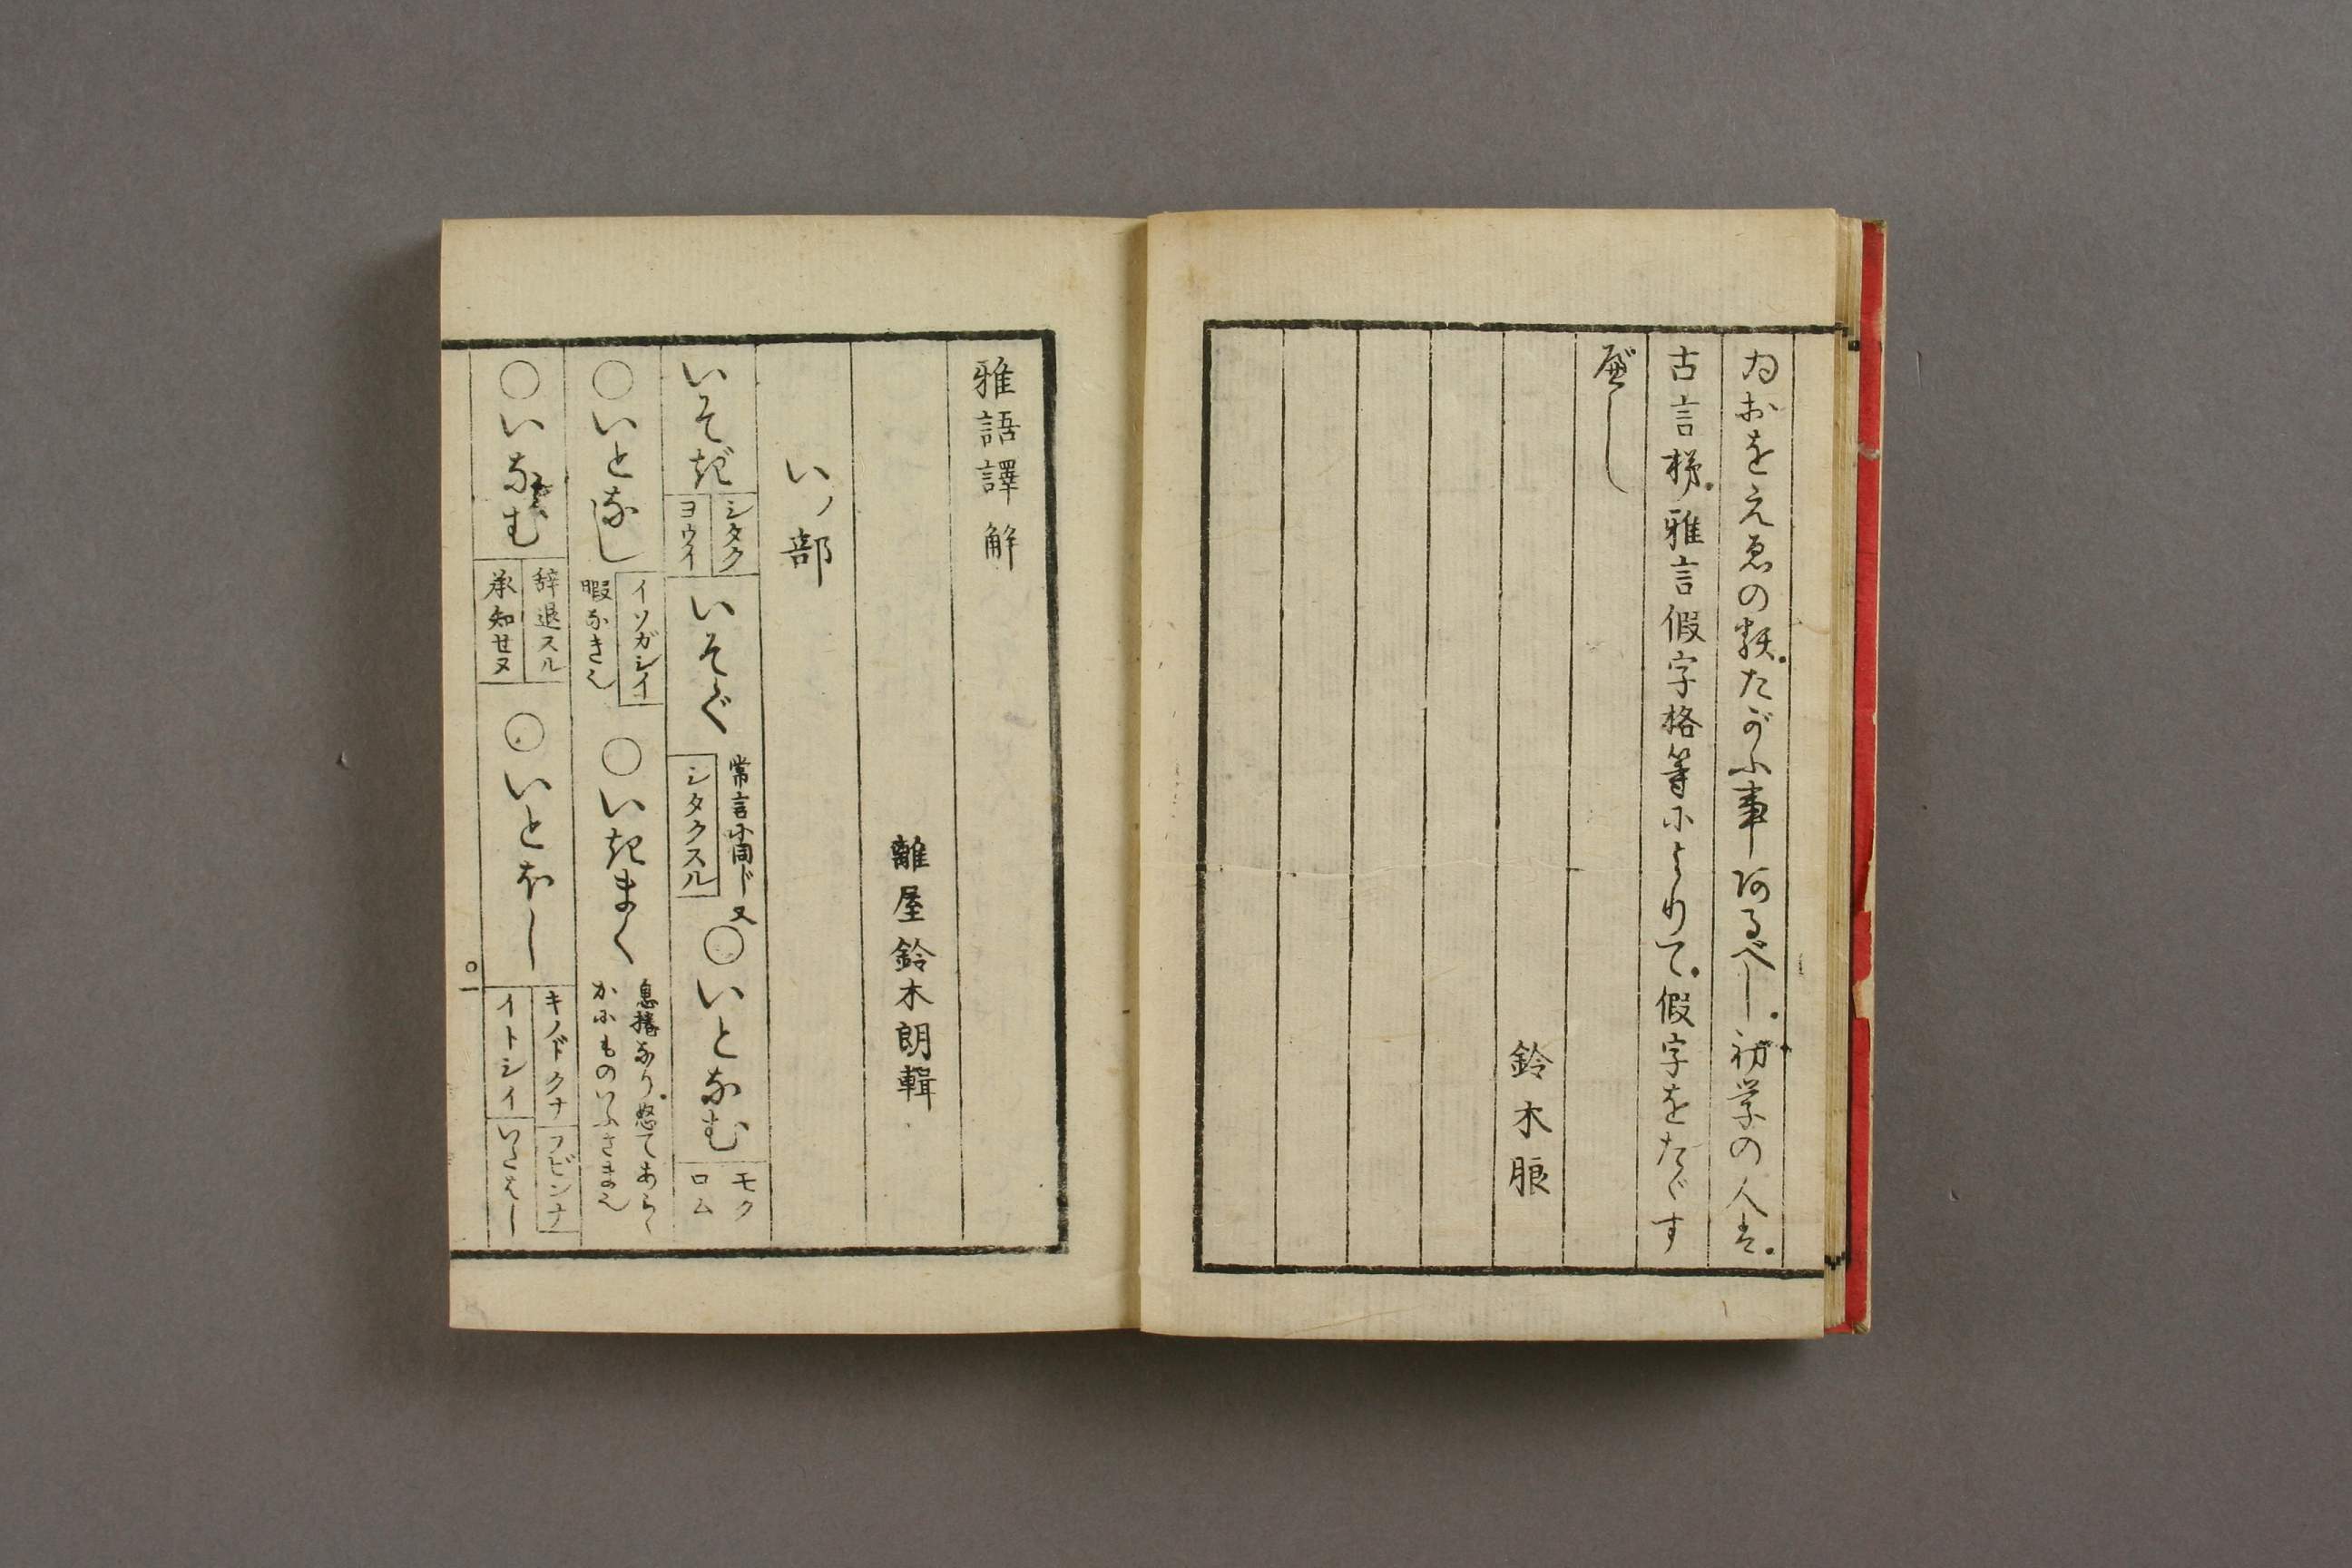 ゐおをえゑの類。たがふ事あるべし。初学の人は。
古言梯。雅言假字格等によりて。假字をたゞす
べし
鈴木朖
雅語譯解
離屋鈴木朗輯
いノ部
いそぎ シタク ヨウイ いそぐ 常言に同ジ又 シタクスル ○いとなむ モクロム
○いとなし イソガシイ 暇なき也 ○いきまく 息捲なり。怒てあらゝかにものいふさま也
○いなむ 辞退スル 承知セヌ ○いとほし キノドクナ フビンナ イトシイ いたはし
○一